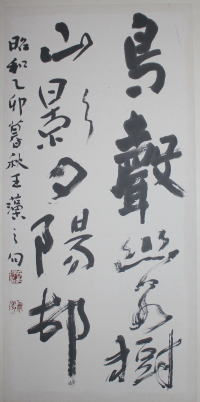 鳥聲幽谷樹
山影夕陽邨
昭和乙卯暮秋王藻之句